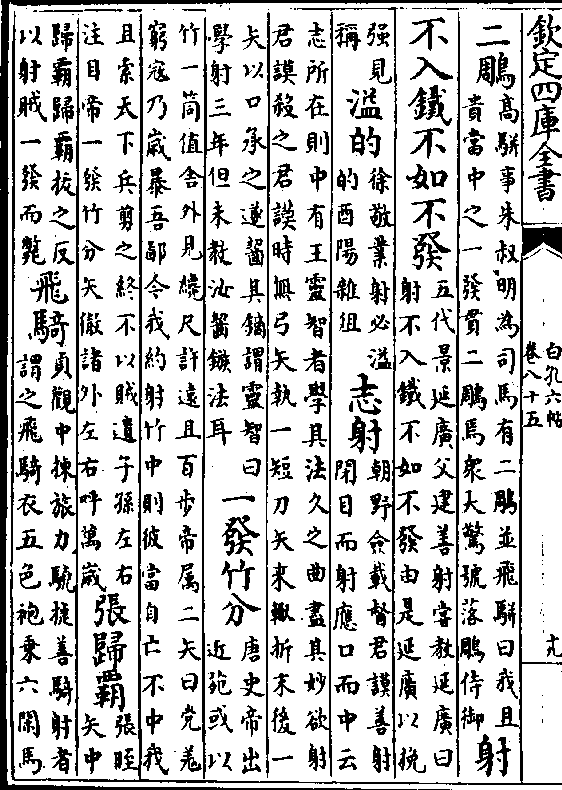 欽定四庫全書
白孔六帖
卷八十五
二鵰
高駢事朱叔明為司馬有二鵰並飛駢曰我且
貴當中之一發貫二鵰馬衆大驚號落鵰侍御
射
不入鐵不如不發
五代景延廣父建善射嘗教延廣曰
射不入鐵不如不發由是延廣以挽
强見
稱
溢的
徐敬業射必溢
的酉陽雜俎
志射
朝野僉載督君謨善射
閉目而射應口而中云
志所在則中有王靈智者學其法久之曲盡其妙欲射
君謨殺之君謨時無弓矢執一短刀矢來輙折末後一
矢以口承之遂齧其鏑謂靈智曰
學射三年但未教汝齧鏃法耳
一發竹分
唐史帝出
近苑或以
竹一箇值舍外見纔尺許遠且百步帝属二矢曰党羌
窮寇乃歲暴吾鄙今我約射竹中則彼當自亡不中我
且索天下兵剪之終不以賊遺子孫左右
注目帝一發竹分矢徹諸外左右呼萬歲
張歸霸
張晊
矢中
歸霸歸霸拔之反
以射賊一發而斃
飛騎
貞觀中揀旅力驍捷善騎射者
謂之飛騎衣五色袍乗六閑馬